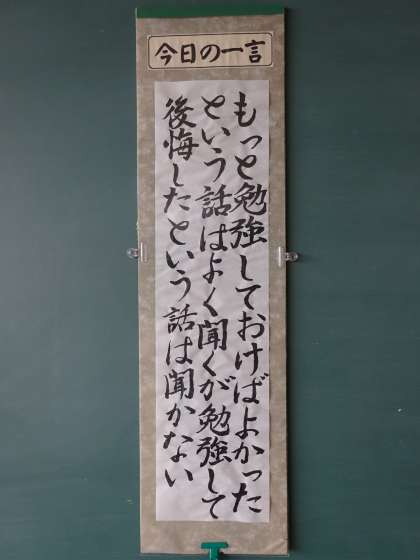 今日の一言
もっと勉強しておけばよかった
という話はよく聞くが勉強して
後悔したという話は聞かない